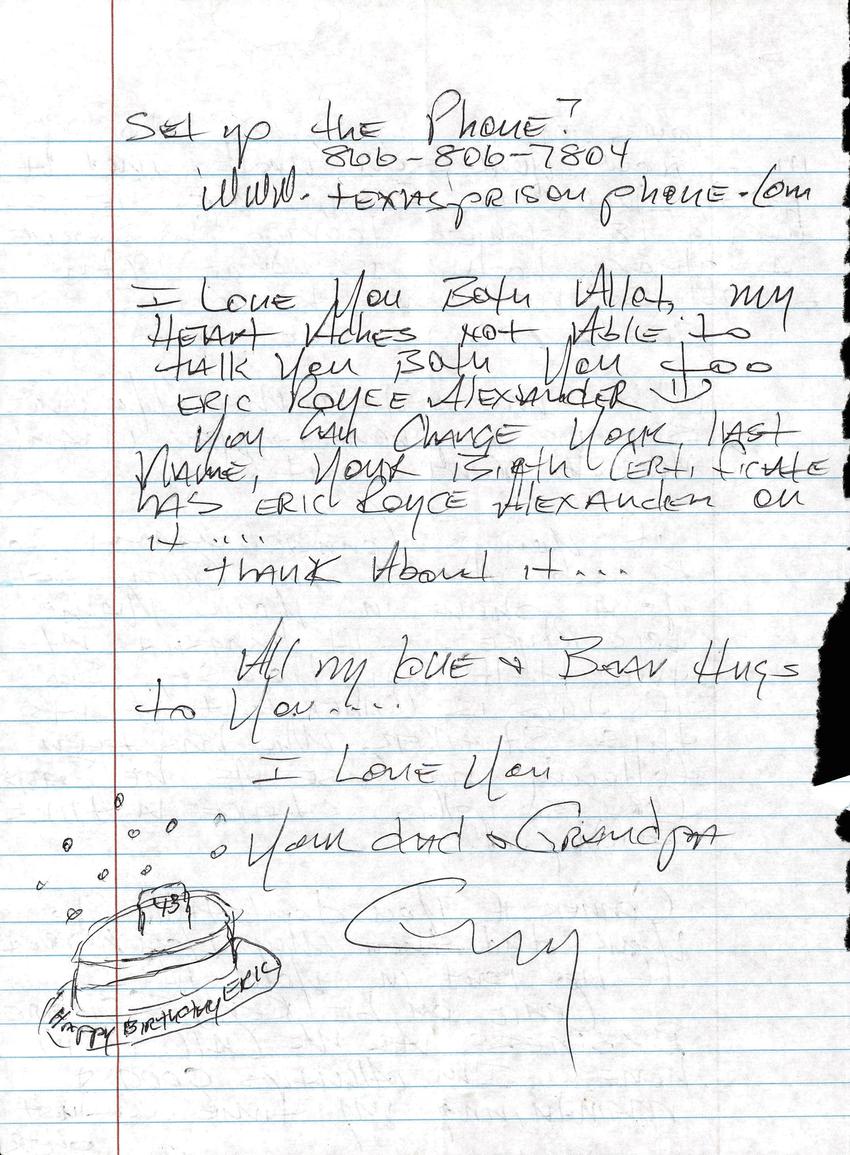 Set up the Phone?
866-806-7804
WWW.texasprisonphone.com
I Love You Both Allot, my
Heart Aches not Able to
talk You Both You too
Eric Royce Alexander
You can Change Your last
Name, Your Birth Certificate
has Eric Royce Alexander on
it ....
thank About it...
All my love & Bear Hugs
to You.....
I Love You
Your dad & Grandpa
Guy
43
Happy Birthday Eric